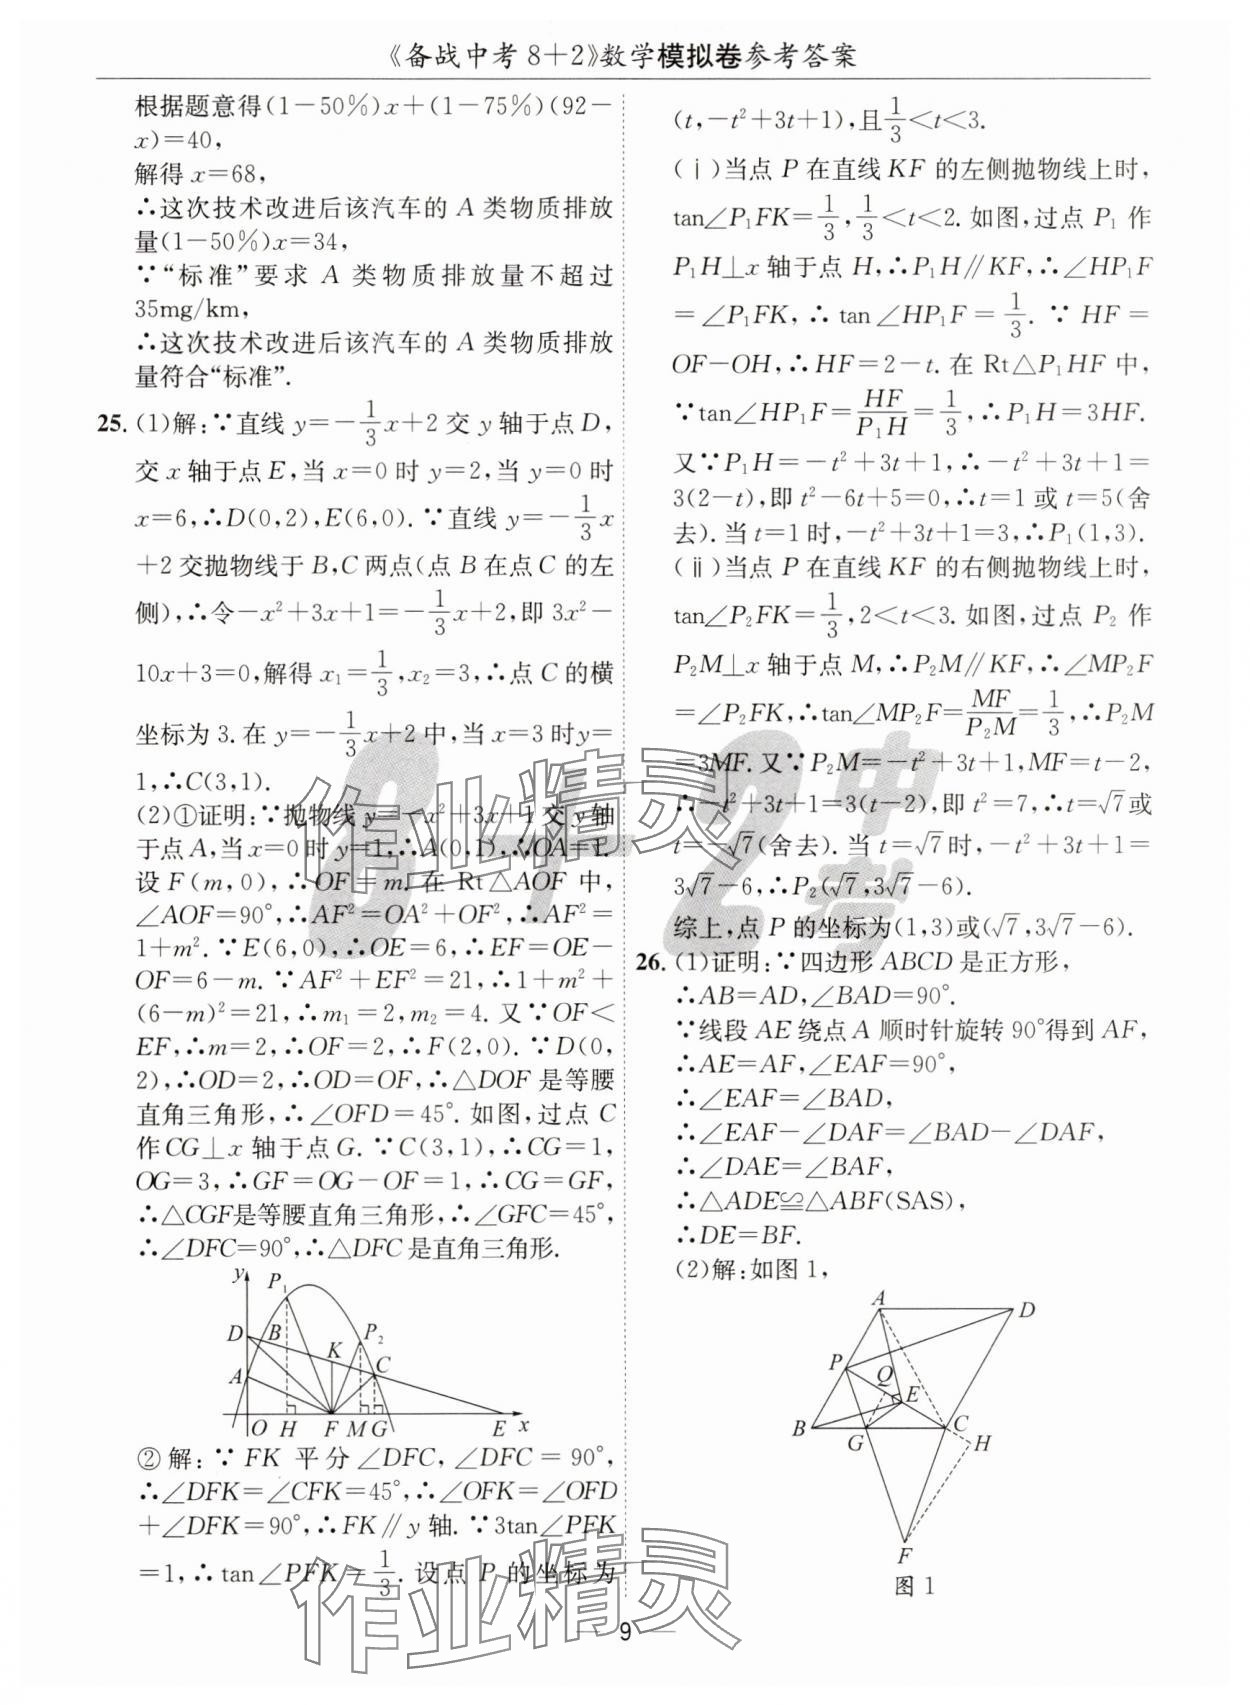 《备战中考8+2》数学模拟卷参考答案
根据题意得(1-50%)x+(1-75%)(92-
x)=40,
解得x=68,
∴这次技术改进后该汽车的A类物质排放
量(1-50%)x=34,
∵“标准”要求A类物质排放量不超过
35mg/km,
∴这次技术改进后该汽车的A类物质排放
量符合“标准”.
25.(1)解:∵直线y=-1/3x+2交y轴于点D,
交x轴于点E,当x=0时y=2,当y=0时
x=6,∴D(0,2),E(6,0).∵直线y=-1/3x
+2交抛物线于B,C两点(点B在点C的左
侧),∴令-x²+3x+1=-1/3x+2,即3x²-
10x+3=0,解得x₁=1/3,x₂=3,∴点C的横
坐标为3.在y=-1/3x+2中,当x=3时y=
1,∴C(3,1).
(2)①证明:∵抛物线y=-x²+3x+1交y轴
于点A,当x=0时y=1,∴A(0,1),∴OA=1.
设F(m,0),∴OF=m.在Rt△AOF中,
∠AOF=90°,∴AF²=OA²+OF²,∴AF²=
1+m².∵E(6,0),∴OE=6,∴EF=OE-
OF=6-m.∵AF²+EF²=21,∴1+m²+
(6-m)²=21,∴m₁=2,m₂=4.又∵OF<
EF,∴m=2,∴OF=2,∴F(2,0).∵D(0,
2),∴OD=2,∴OD=OF,∴△DOF是等腰
直角三角形,∴∠OFD=45°.如图,过点C
作CG⊥x轴于点G.∵C(3,1),∴CG=1,
OG=3,∴GF=OG-OF=1,∴CG=GF,
∴△CGF是等腰直角三角形,∴∠GFC=45°,
∴∠DFC=90°,∴△DFC是直角三角形.
y P₁
D B P₂
K
A C
O H F M G E x
②解:∵FK平分∠DFC,∠DFC=90°,
∴∠DFK=∠CFK=45°,∴∠OFK=∠OFD
+∠DFK=90°,∴FK∥y轴.∵3tan∠PFK
=1,∴tan∠PFK=1/3.设点P的坐标为
(t,-t²+3t+1),且1/3<t<3.
(ⅰ)当点P在直线KF的左侧抛物线上时,
tan∠P₁FK=1/3,1/3<t<2.如图,过点P₁作
P₁H⊥x轴于点H,∴P₁H∥KF,∴∠HP₁F
=∠P₁FK,∴tan∠HP₁F=1/3.∵HF=
OF-OH,∴HF=2-t.在Rt△P₁HF中,
∵tan∠HP₁F=HF/P₁H=1/3,∴P₁H=3HF.
又∵P₁H=-t²+3t+1,∴-t²+3t+1=
3(2-t),即t²-6t+5=0,∴t=1或t=5(舍
去).当t=1时,-t²+3t+1=3,∴P₁(1,3).
(ⅱ)当点P在直线KF的右侧抛物线上时,
tan∠P₂FK=1/3,2<t<3.如图,过点P₂作
P₂M⊥x轴于点M,∴P₂M∥KF,∴∠MP₂F
=∠P₂FK,∴tan∠MP₂F=MF/P₂M=1/3,∴P₂M
=3MF.又∵P₂M=-t²+3t+1,MF=t-2,
∴-t²+3t+1=3(t-2),即t²=7,∴t=√7或
t=-√7(舍去).当t=√7时,-t²+3t+1=
3√7-6,∴P₂(√7,3√7-6).
综上,点P的坐标为(1,3)或(√7,3√7-6).
26.(1)证明:∵四边形ABCD是正方形,
∴AB=AD,∠BAD=90°.
∵线段AE绕点A顺时针旋转90°得到AF,
∴AE=AF,∠EAF=90°,
∴∠EAF=∠BAD,
∴∠EAF-∠DAF=∠BAD-∠DAF,
∴∠DAE=∠BAF,
∴△ADE≌△ABF(SAS),
∴DE=BF.
(2)解:如图1,
A D
P Q
E
B G C
H
F
图1
8+2中考
作业精灵
作业精灵
9